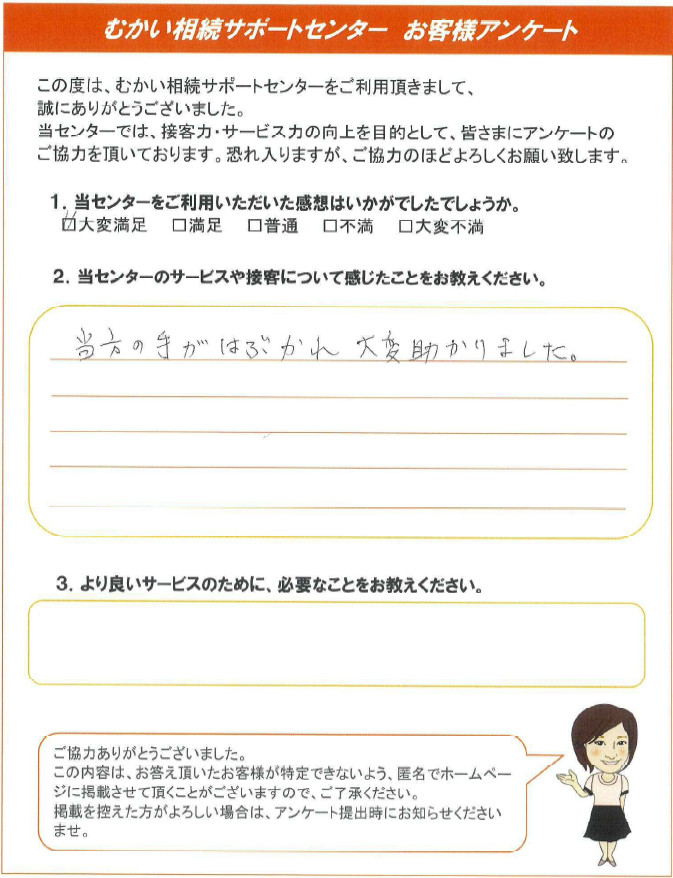 むかい相続サポートセンター お客様アンケート
この度は、むかい相続サポートセンターをご利用頂きまして、
誠にありがとうございました。
当センターでは、接客力・サービス力の向上を目的として、皆さまにアンケートの
ご協力を頂いております。恐れ入りますが、ご協力のほどよろしくお願い致します。
1．当センターをご利用いただいた感想はいかがでしたでしょうか。
☑大変満足 □満足 □普通 □不満 □大変不満
2．当センターのサービスや接客について感じたことをお教えください。
当方の手がはぶかれ 大変助かりました。
3．より良いサービスのために、必要なことをお教えください。
ご協力ありがとうございました。
この内容は、お答え頂いたお客様が特定できないよう、匿名でホームペー
ジに掲載させて頂くことがございますので、ご了承ください。
掲載を控えた方がよろしい場合は、アンケート提出時にお知らせください
ませ。